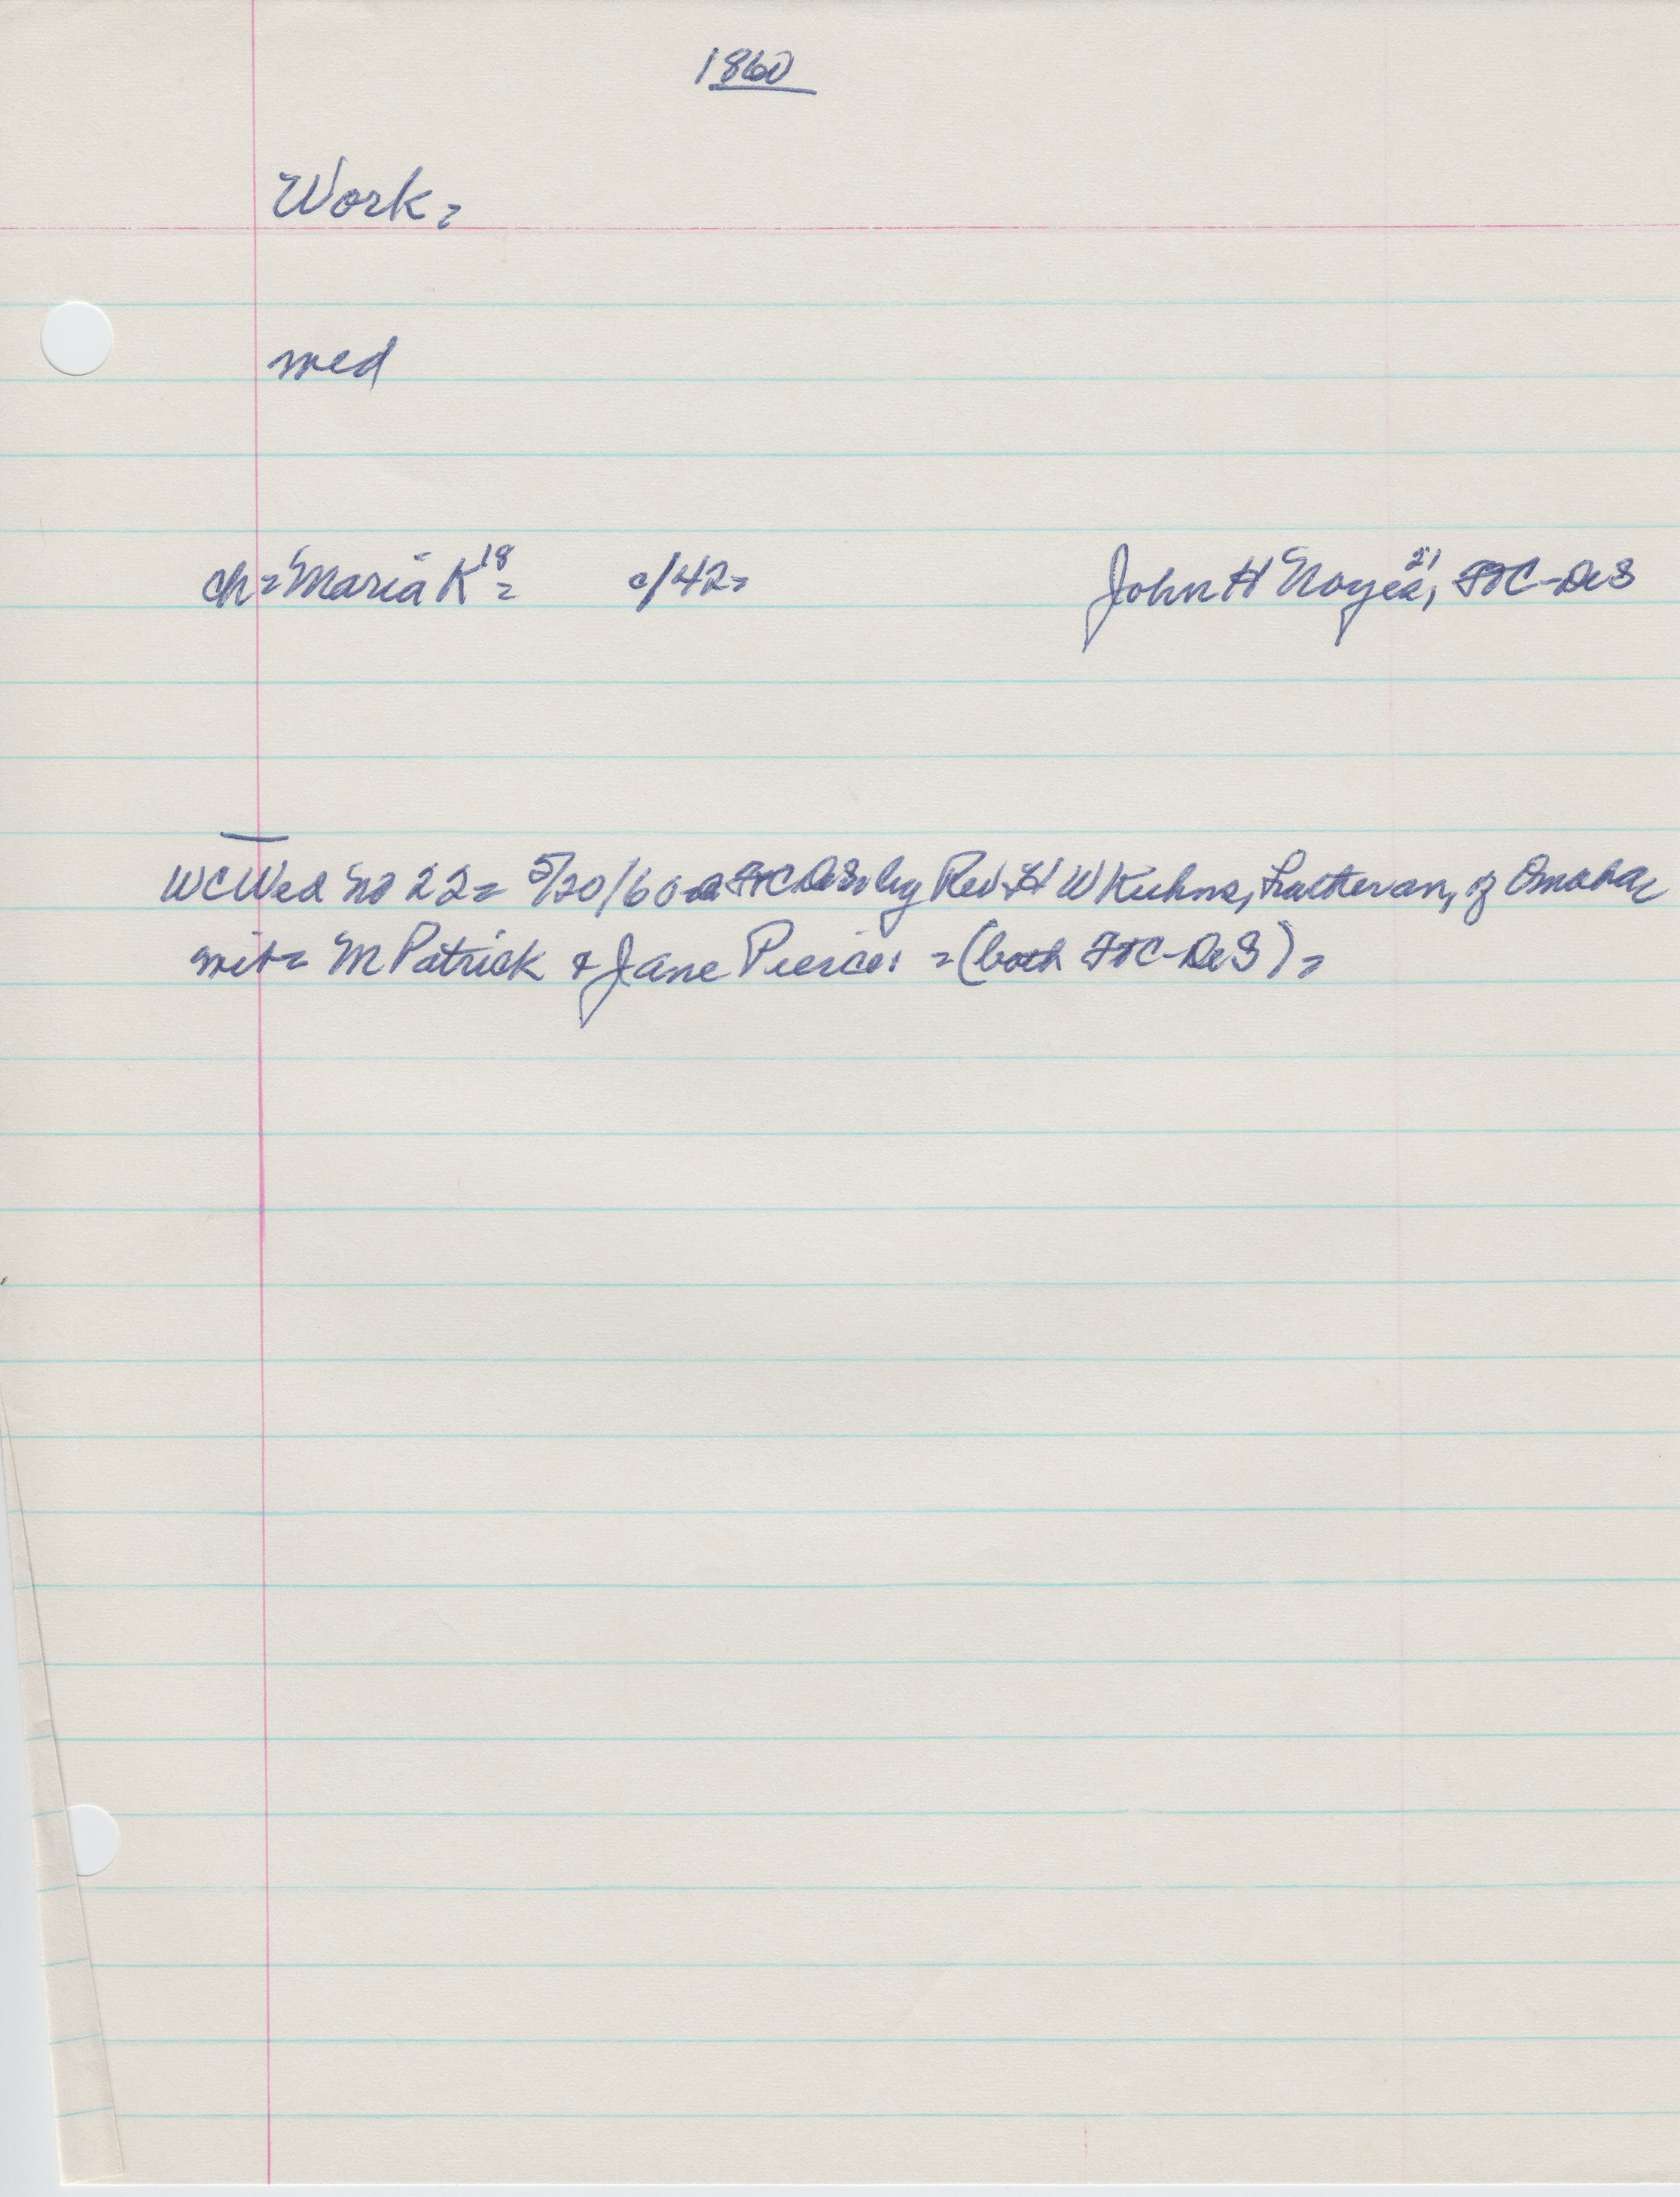 1860
Work =
med
ch = Maria K 18 = c/42 = John H Noyes 21, FTC-DeS
WC Wed No 22 = 5/20/60 a FTC DeS by Rev H W Kuhns, Lutheran, of Omaha
wit = M Patrick & Jane Pierce: = (both FTC-DeS) =